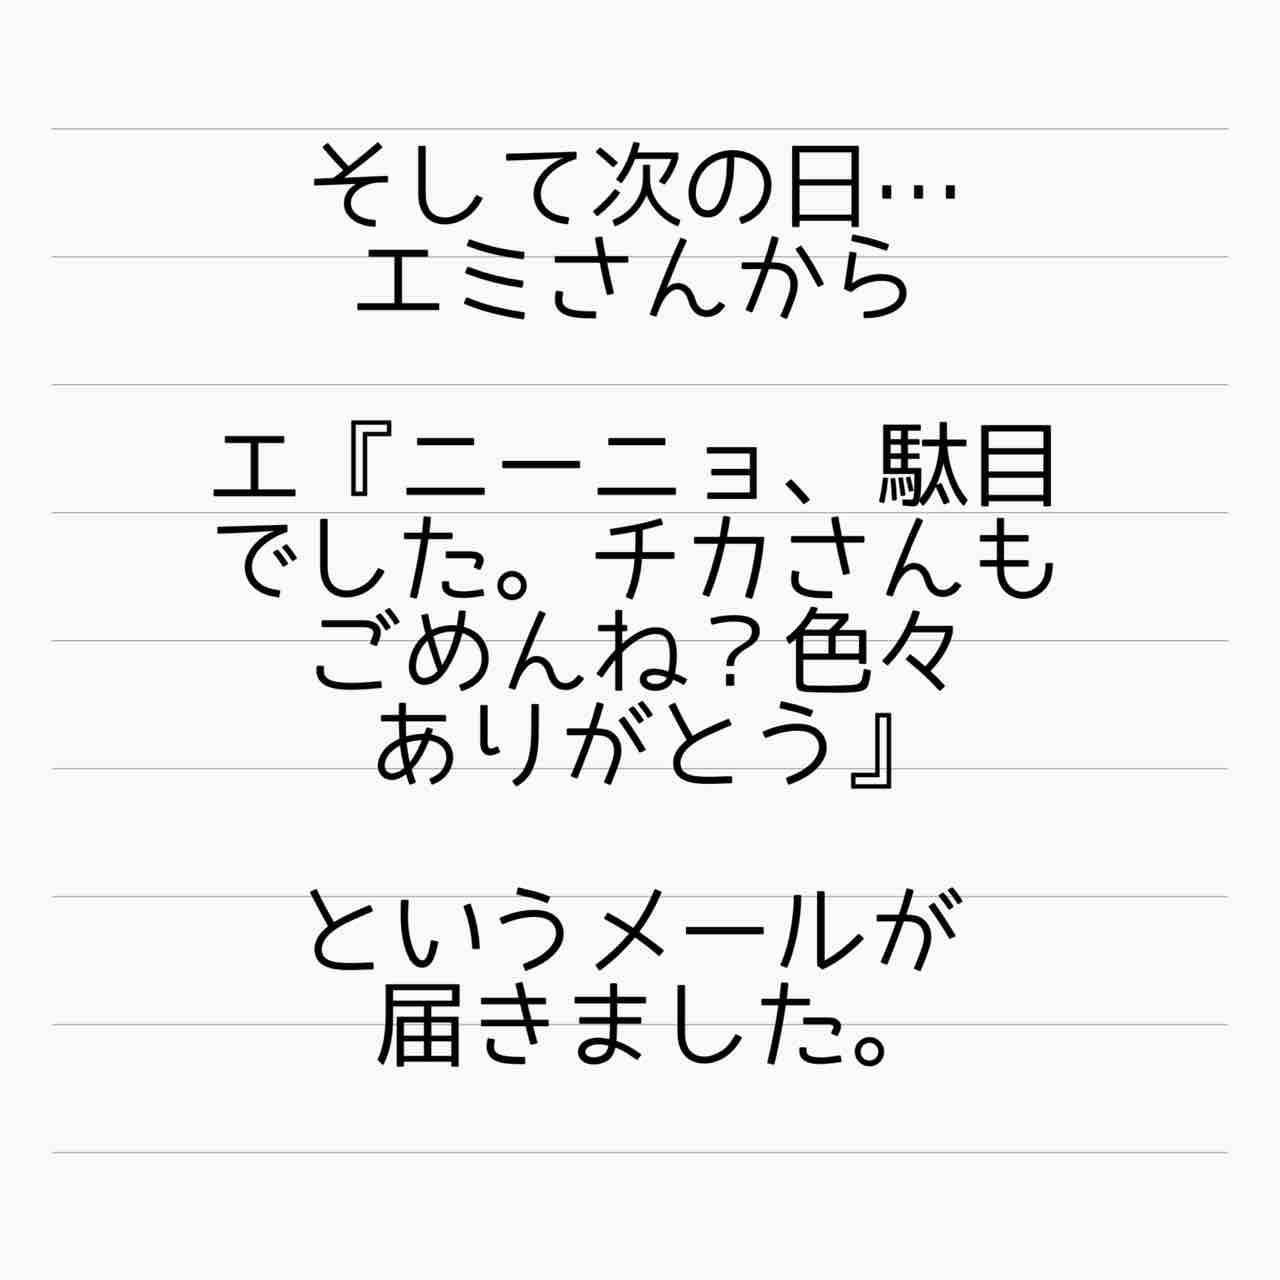 そして次の日…
エミさんから
エ『ニーニョ、駄目
でした。チカさんも
ごめんね？色々
ありがとう』
というメールが
届きました。